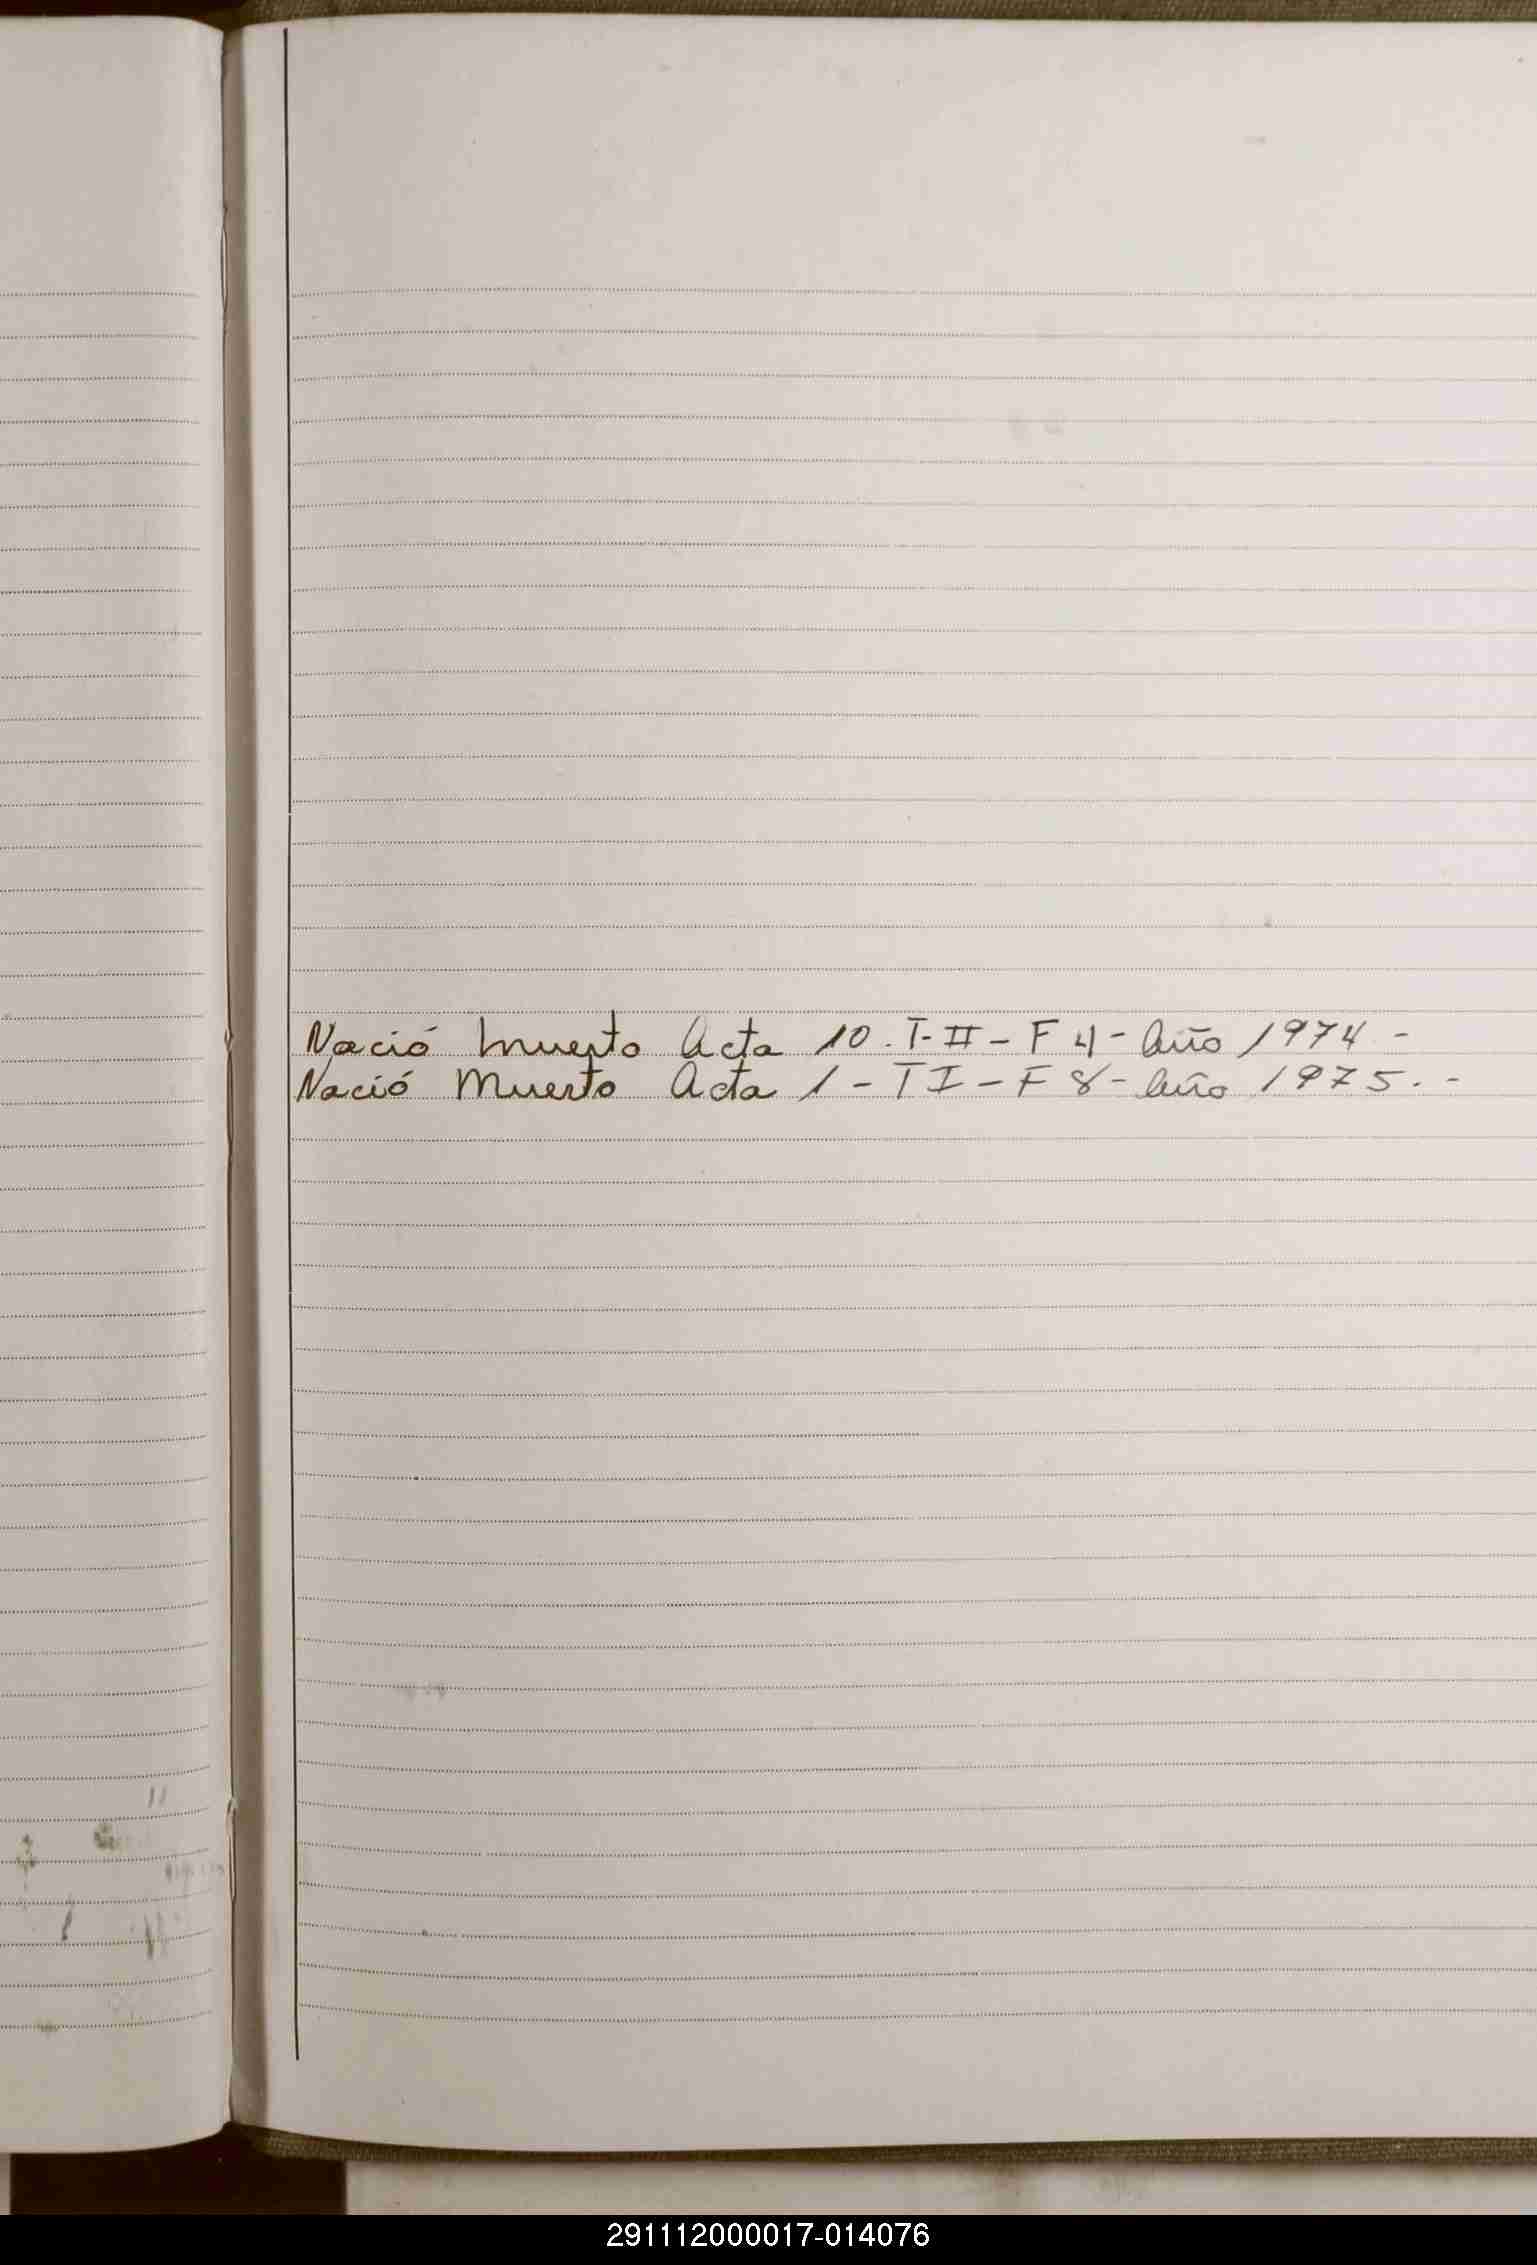 Nació muerto Acta 10. T-II - F 4 - Año 1974 -
Nació Muerto Acta 1 - T I - F 8 - Año 1975. -
291112000017-014076